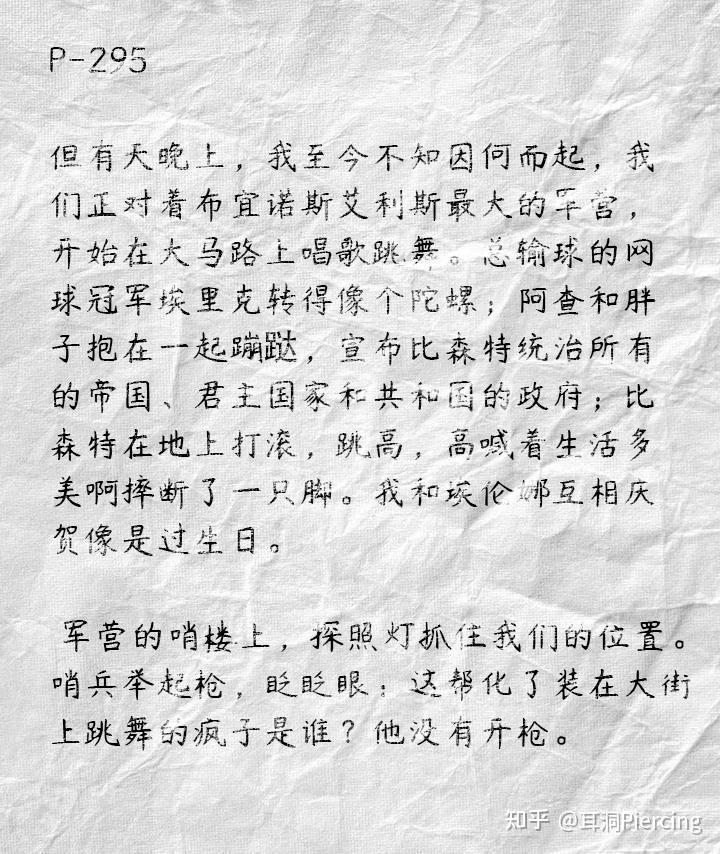 P-295
但有天晚上，我至今不知因何而起，我
们正对着布宜诺斯艾利斯最大的军营，
开始在大马路上唱歌跳舞。总输球的网
球冠军埃里克转得像个陀螺；阿查和胖
子抱在一起蹦跶，宣布比森特统治所有
的帝国、君主国家和共和国的政府；比
森特在地上打滚，跳高，高喊着生活多
美啊摔断了一只脚。我和埃伦娜互相庆
贺像是过生日。
军营的哨楼上，探照灯抓住我们的位置。
哨兵举起枪，眨眨眼：这帮化了装在大街
上跳舞的疯子是谁？他没有开枪。
知乎 @耳洞Piercing